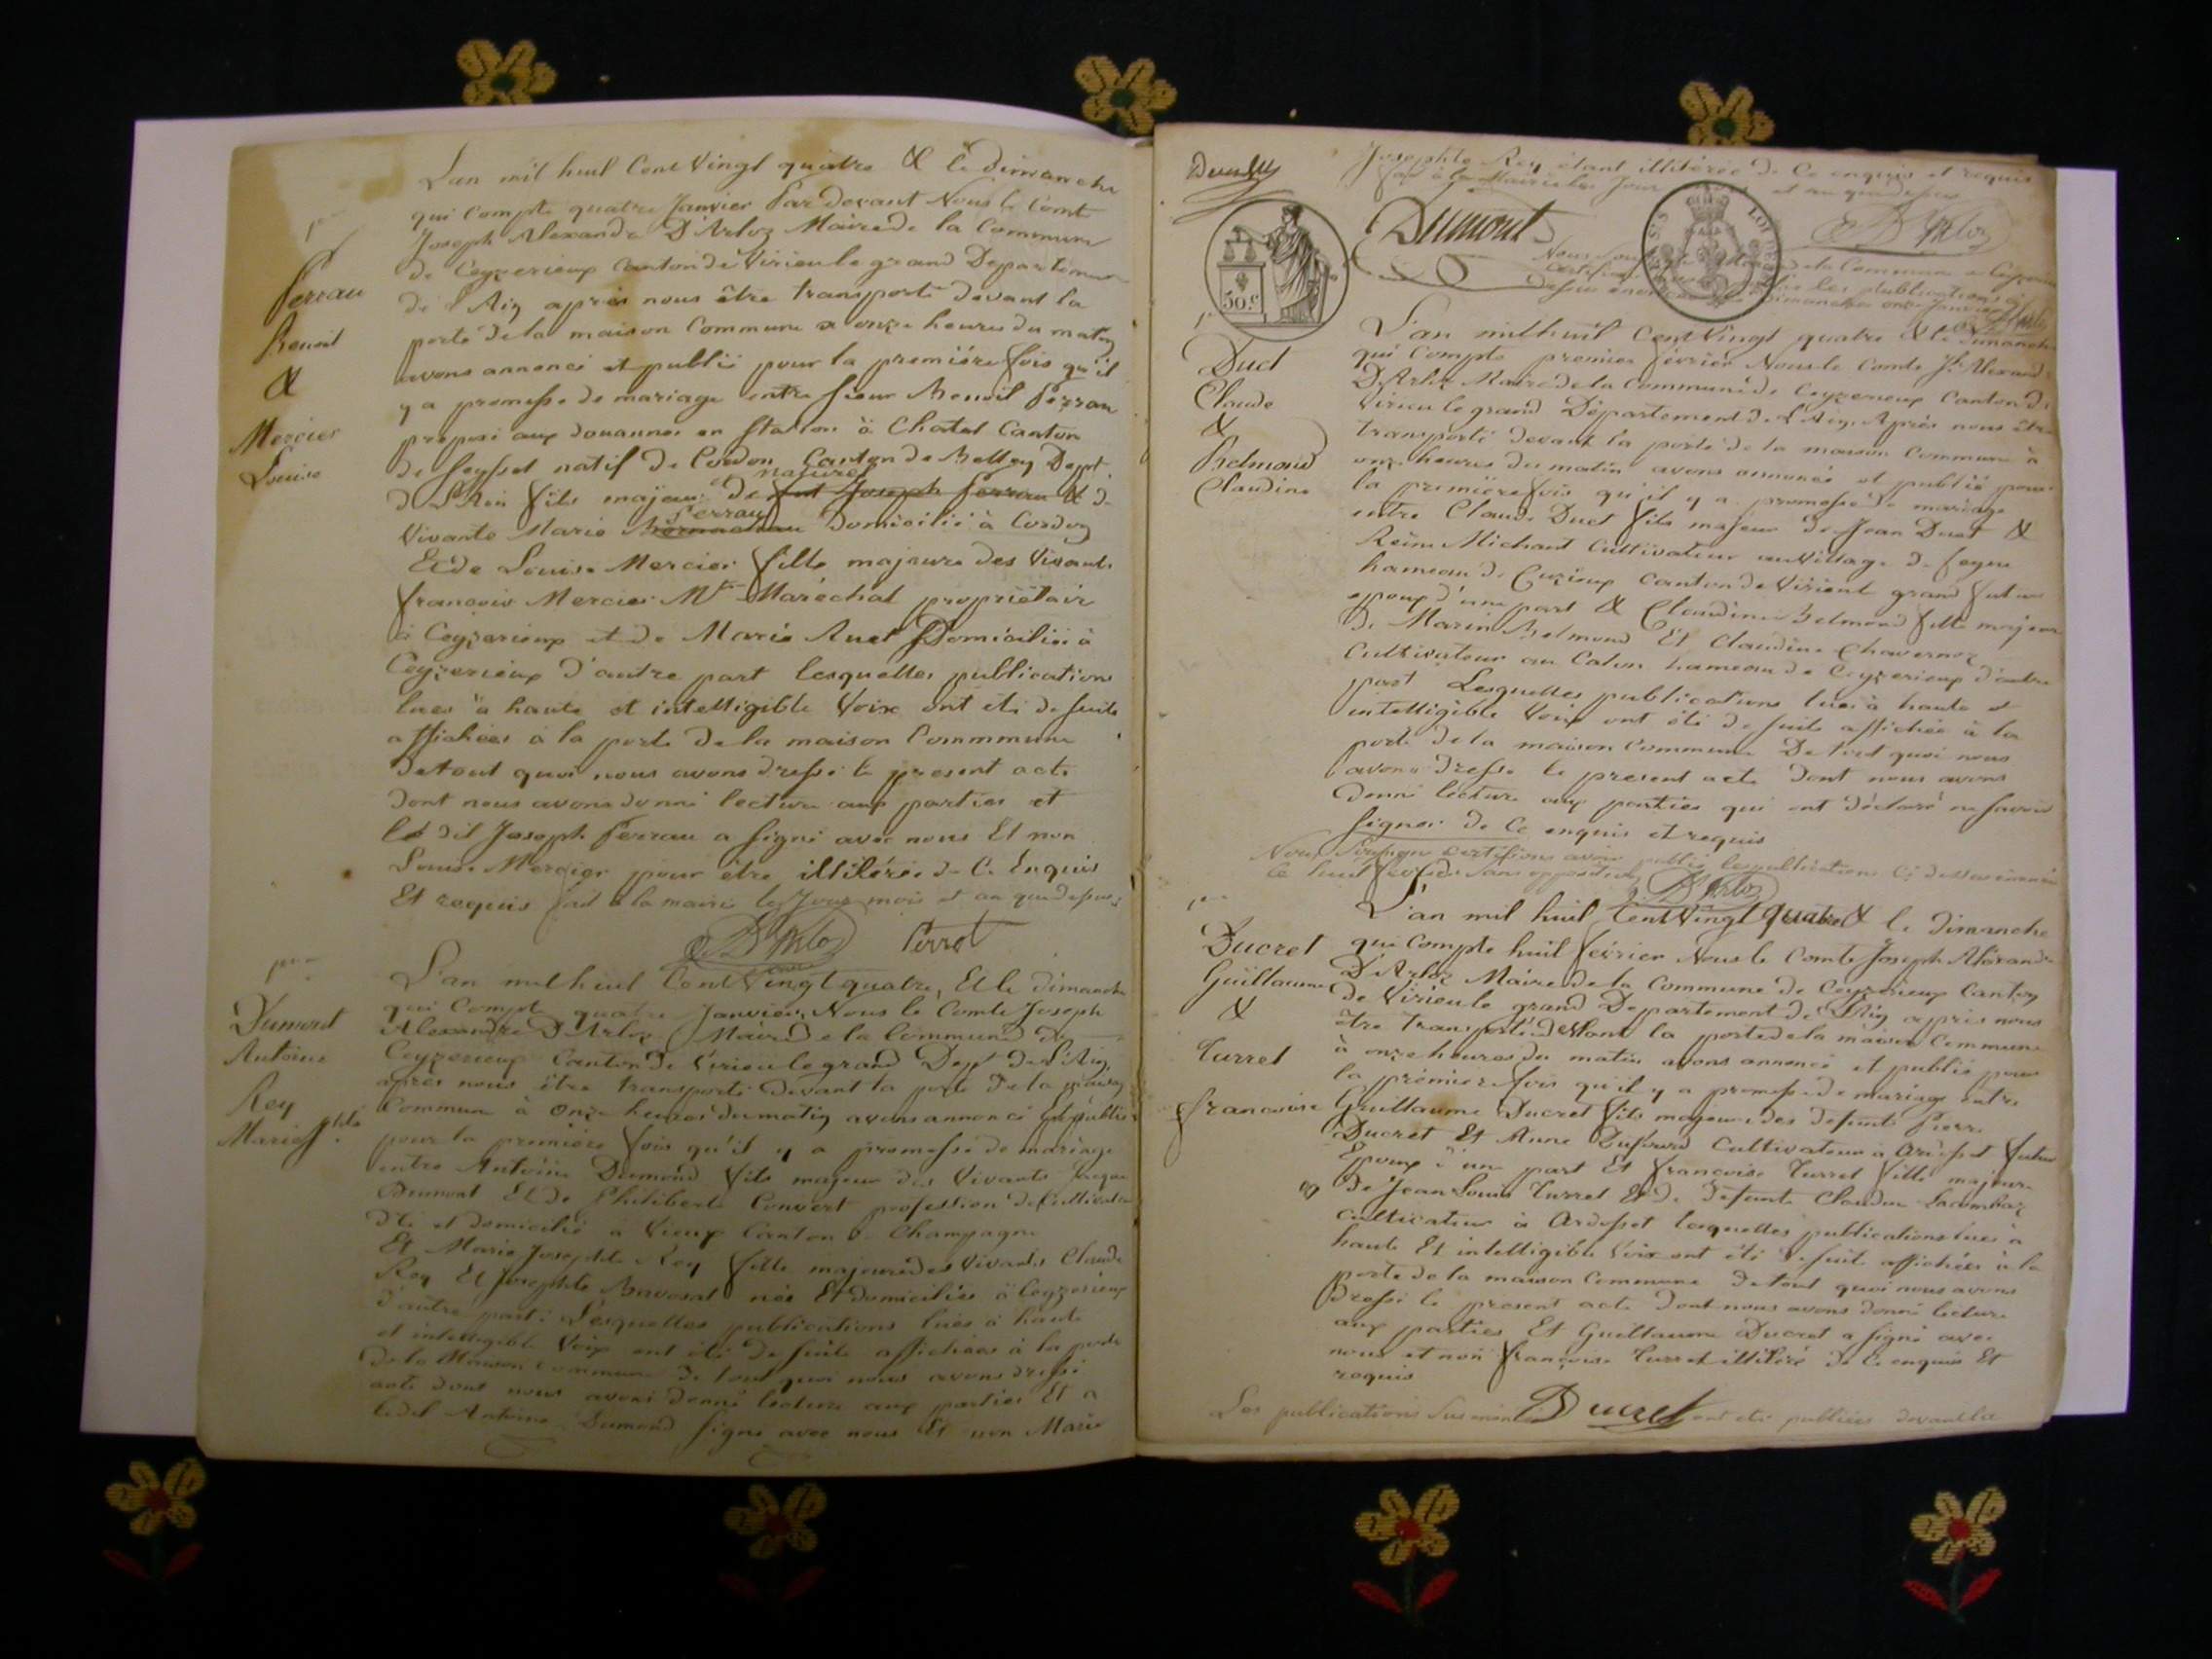 1re
Perrau
Benoit
&
Mercier
Louise
L'an mil huit Cent Vingt quatre & le dimanche
qui Compte quatre Janvier Par devant Nous le Comte
Joseph Alexandre D'Arloz Maire de la Commune
de Ceyzerieux Canton de Virieu le grand Departement
de l'Ain après nous être transporté devant la
porte de la maison Commune a onze heures du matin
avons annoncé et publié pour la première fois qu'il
y a promesse de mariage entre sieur Benoit Perrau
preposé aux douannes en Station à Chatel Canton
de Seyssel natif de Cordon Canton de Belley Dept
de L'Ain fils majeur et naturel de feu Joseph Perrau & de
Vivante Marie Perrau domicilié à Cordon
Et de Louise Mercier fille majeure des Vivants
françois Mercier Mtre Maréchal propriétaire
à Ceyzerieux et de Marie Ruet Domiciliée à
Ceyzerieux d'autre part lesquelles publications
lues à haute et intelligible Voix ont été de suite
affichées a la porte de la maison Commmune
de tout quoi nous avons dressé le present acte
dont nous avons donné lecture aux parties et
le dit Joseph Perrau a signé avec nous Et non
Louise Mercier pour être illitérée de Ce Enquis
Et requis fait à la mairie les Jour mois et an que dessus
D'Arloz Perrot
pre
Dumont
Antoine
Rey
Marie Jphte
L'an mil huit Cent Vingt quatre, Et le dimanche
qui Compte quatre Janvier, Nous le Comte Joseph
Alexandre D'Arloz Maire de la Commune de
Ceyzerieux Canton de Virieu le grand Dept de L'Ain,
après nous être transporté devant la porte de la maison
Commune à Onze heures du matin avons annoncé Et publié
pour la première fois qu'il y a promesse de mariage
entre Antoine Dumond fils majeur des Vivants Jacque
Dumont Et de Philiberte Convert profession de Cultivateur
né et domicilié à Vieux Canton de Champagne
Et Marie Josephte Rey fille majeure des Vivants Claude
Rey Et Josephte Bavosat née Et domiciliée à Ceyzerieux
d'autre part: Lesquelles publications lues à haute
et intelligible Voix ont été de suite affichées à la porte
de la Maison Commune de tout quoi nous avons dressé
acte dont nous avons donné lecture aux parties Et a
ledit Antoine Dumond signé avec nous Et non Marie
Josephte Rey étant illitérée de Ce enquis et requis
fait à la Mairie les Jour et an que dessus
Dumont D'Arloz
50.c
Nous de la Commune de Ceyzerieux
les publications
dimanche onze Janvier
1re
Duct
Claude
&
Belmond
Claudine
L'an mil huit Cent Vingt quatre & le dimanche
qui Compte premier février Nous le Comte Jh Alexandre
D'Arloz Maire de la Commune de Ceyzerieux Canton de
Virieu le grand Département de L'Ain, Après nous être
transporté devant la porte de la maison Commune à
onze heures du matin avons annoncé et publié pour
la première fois qu'il y a promesse de mariage
entre Claude Duct fils majeur de Jean Duct &
Reine Michaut Cultivateur au Village de
hameau de Cuzieux Canton de Virieu le grand futur
epoux d'une part & Claudine Belmond fille majeure
de Marin Belmond Et Claudine Chavernoz
Cultivateur au Calon hameau de Ceyzerieux d'autre
part Lesquelles publications lues à haute et
intelligible Voix ont été de suite affichée à la
porte de la maison Commune De tout quoi nous
avons dressé le present acte dont nous avons
donné lecture aux parties qui ont déclaré ne savoir
signer de Ce enquis et requis
Nous certifions avoir publié les publications Ci dessus
le huit février sans opposition D'Arloz
1re
Ducret
Guillaume
&
Turrel
francoise
L'an mil huit Cent Vingt quatre & le Dimanche
qui Compte huit février Nous le Comte Joseph Alexandre
D'Arloz Maire de la Commune de Ceyzerieux Canton
de Virieu le grand Departement de L'Ain après nous
être transporté devant la porte de la maison Commune
à onze heures du matin avons annoncé et publié pour
la première fois qu'il y a promesse de mariage entre
Guillaume Ducret fils majeur des defunts Pierre
Ducret Et Anne Cultivateur à Ardosset futur
Epoux d'une part Et françoise Turrel fille majeure
de Jean Louis Turrel Et de defunte Claudine Lacombaz
Cultivateur à Ardosset lesquelles publications lues à
haute Et intelligible Voix ont été de suite affichées à la
porte de la maison Commune de tout quoi nous avons
dressé le present acte dont nous avons donné lecture
aux parties Et Guillaume Ducret a signé avec
nous et non françoise Turrel illitéré de Ce enquis Et
requis
Ducret
Les publications ont été publiées devant la